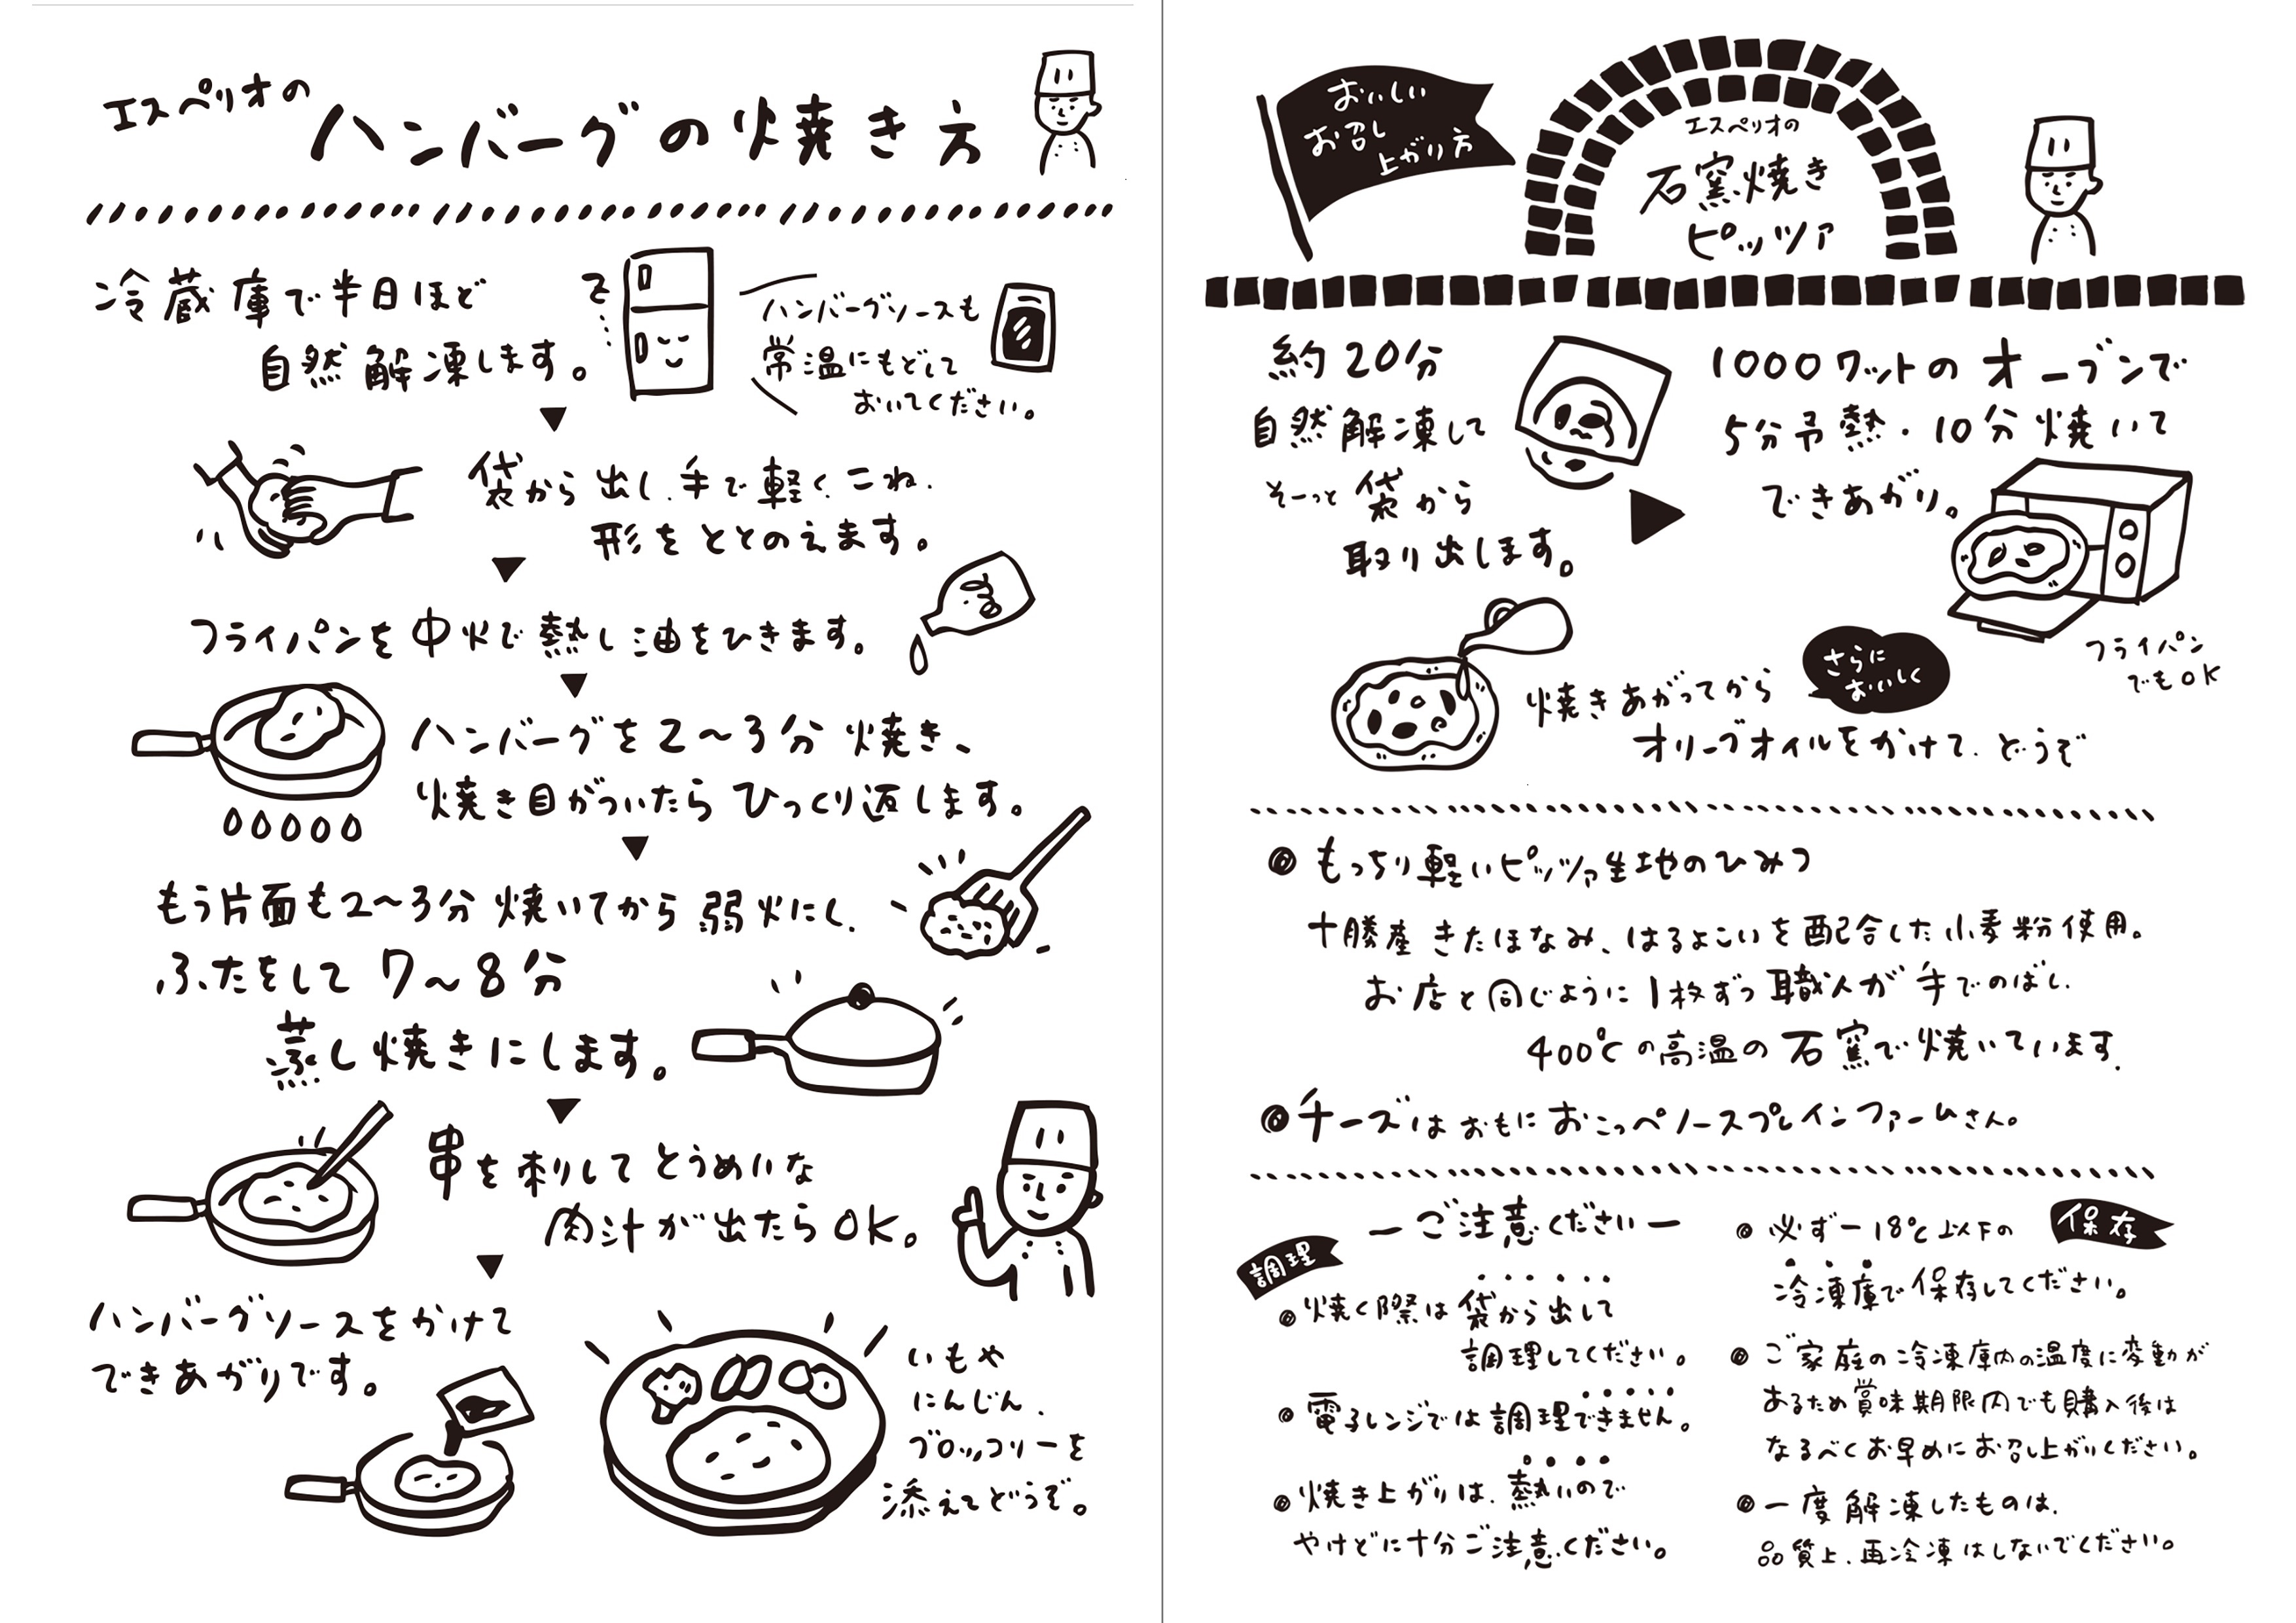 エスペリオの
ハンバーグの焼き方
冷蔵庫で半日ほど
自然解凍します。
ハンバーグソースも
常温にもどして
おいてください。
袋から出し、手で軽くこね、
形をととのえます。
フライパンを中火で熱し油をひきます。
ハンバーグを2〜3分焼き、
焼き目がついたらひっくり返します。
もう片面も2〜3分焼いてから弱火にし、
ふたをして7〜8分
蒸し焼きにします。
串を刺してとうめいな
肉汁が出たらOK。
ハンバーグソースをかけて
できあがりです。
いもや
にんじん、
ブロッコリーを
添えてどうぞ。
おいしい
お召し
上がり方
エスペリオの
石窯焼き
ピッツァ
約20分
自然解凍して
そーっと袋から
取り出します。
1000ワットのオーブンで
5分予熱・10分焼いて
できあがり。
フライパン
でもOK
さらに
おいしく
焼きあがってから
オリーブオイルをかけて、どうぞ
◎もっちり軽いピッツァ生地のひみつ
十勝産きたほなみ、はるよこいを配合した小麦粉使用。
お店と同じように1枚ずつ職人が手でのばし、
400℃の高温の石窯で焼いています。
◎チーズはおもにおこっぺノースプレインファームさん。
ーご注意くださいー
調理
◎焼く際は袋から出して
調理してください。
◎電子レンジでは調理できません。
◎焼き上がりは、熱いので
やけどに十分ご注意ください。
保存
◎必ずー18℃以下の
冷凍庫で保存してください。
◎ご家庭の冷凍庫内の温度に変動が
あるため賞味期限内でも購入後は
なるべくお早めにお召し上がりください。
◎一度解凍したものは、
品質上、再冷凍はしないでください。